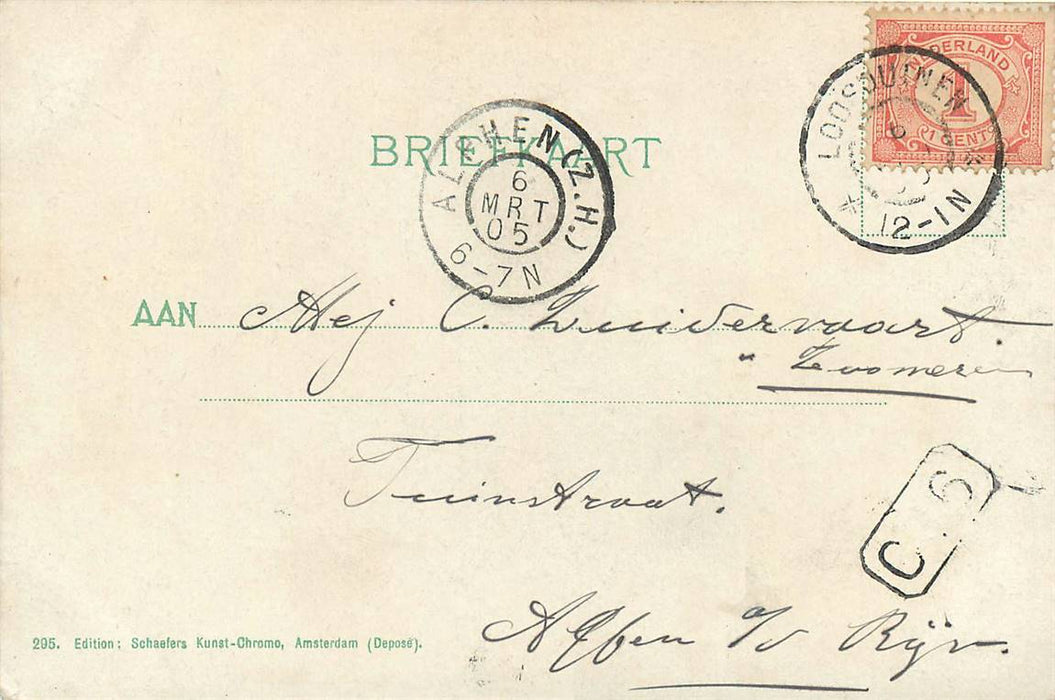 NEDERLAND
1
1 CENT
LOOSDUINEN
12-1N
BRIEFKAART
ALPHEN (Z.H.)
6
MRT
05
6-7N
AAN Mej C. Zuidervaart.
Tuinstraat.
C 6
Alfen a/d Rijn.
295. Edition: Schaefers Kunst-Chromo, Amsterdam (Deposé).